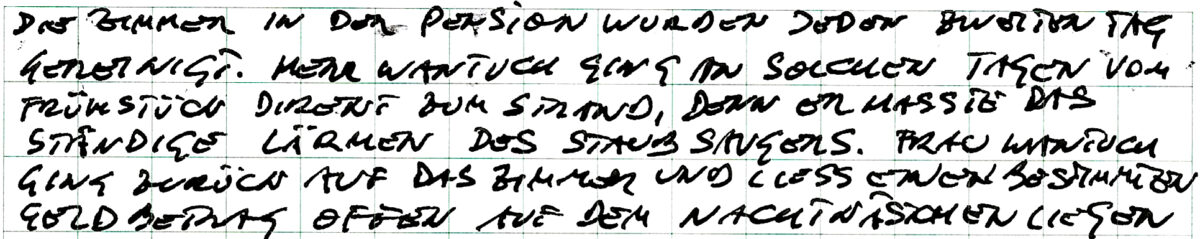 DIE ZIMMER IN DER PENSION WURDEN JEDEN ZWEITEN TAG
GEREINIGT. HERR WANTUCH GING AN SOLCHEN TAGEN VOM
FRÜHSTÜCK DIREKT ZUM STRAND, DENN ER HASSTE DAS
STÄNDIGE LÄRMEN DES STAUBSAUGERS. FRAU WANTUCH
GING ZURÜCK AUF DAS ZIMMER UND LIESS EINEN BESTIMMTEN
GELDBETRAG OFFEN AUF DEM NACHTKÄSTCHEN LIEGEN